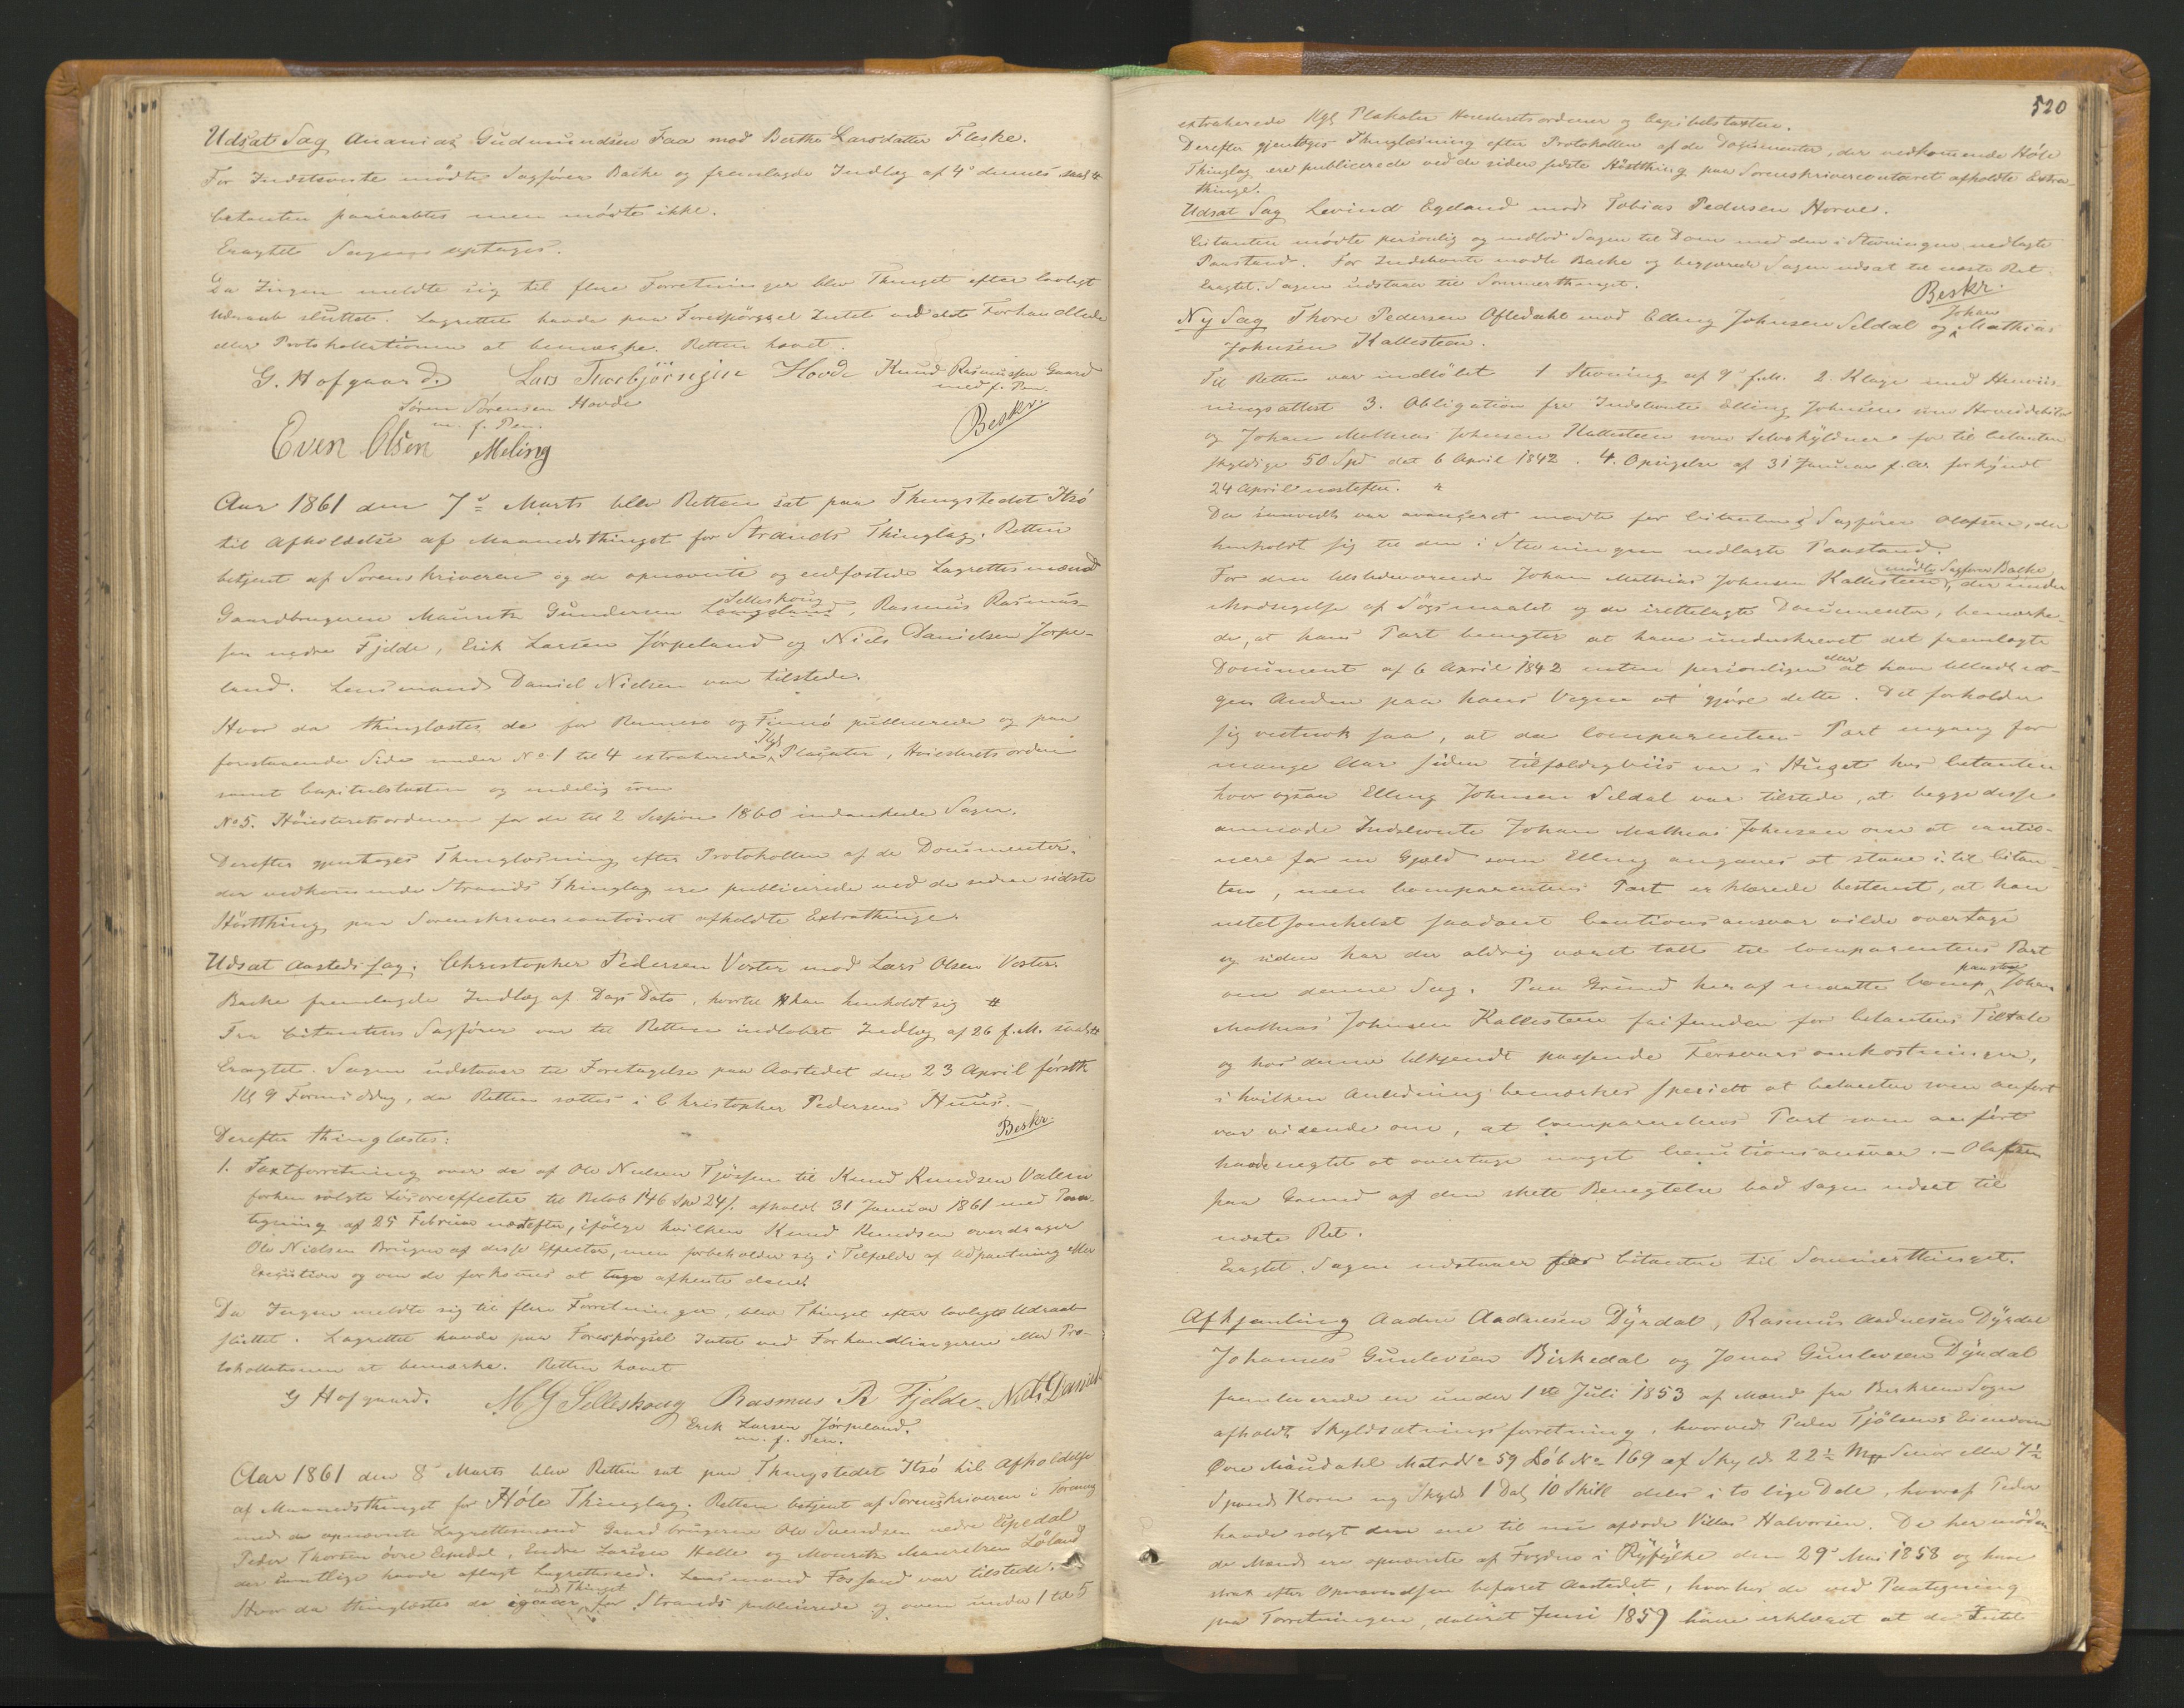 Udsat Sag Ananias Gudmundsen Faa mod Berthe Larsdatter Fleske.
For Indstevnte mödte Sagförer Backe og fremlagde Indlæg af 4de dennes saal.
Citanten paaraabtes men mödte ikke.
Eragtet Sagen optages.
Da Ingen meldte sig til flere Forretninger blev Thinget efter lovligt
Udraab sluttet. Lagrettet havde paa Forespörgsel Intet ved det Forhandlede
eller Protokollationen at bemærke. Retten hævet.
G. Hofgaard. Lars Thorbjörnsen Hovde Knud Rasmussen Gaard
med f. Pen.
Sören Sörensen Hovde
m. f. Pen.
Beskr.
Even Olsen Meling
Aar 1861 den 7de Marts blev Retten sat paa Thingstedet Hsö
til Afholdelse af Maanedsthinget for Strands Thinglag. Retten
betjent af Sorenskriveren og de opnævnte og edfæstede Lagrettesmænd
Selleskoug
Gaardbrugerne Mauritz Gundersen Langeland, Rasmus Rasmus-
sen nedre Fjelde, Erik Larsen Jörpeland og Niels Danielsen Jörpe-
land. Lensmand Daniel Nielsen var tilstede.
Hvor da thinglæstes de for Rennesö og Finnö publicerede og paa
Kgl
foranstaaende Side under No 1 til 4 extraherede Placater, Höiesterets orden
samt Capitulstaxten og endelig som
No 5. Höiesteretsordenen for de til 2 Session 1860 indankede Sager.
Derefter gjentoges Thinglæsning efter Protokollen af de Documenter,
der vedkommende Strands Thinglag ere publicerede ved de siden sidste
Höstthing paa Sorenskrivercontoiret afholdte Extrathinge.
Udsat Aasteds sag. Christopher Pedersen Voster mod Lars Olsen Voster.
Backe fremlagde Indlæg af Dags Dato, hvortil han henholdt sig
Fra Citantens Sagförer var til Retten indlöbet Indlæg af 26 f.M. saal.
Eragtet. Sagen udstaaer til Foretagelse paa Aastedet den 23 April förstk
Kl 9 Formiddag, da Retten sættes i Christopher Pedersens Huus.
Beskr.
Derefter thinglæstes:
1. Taxtforretning over de af Ole Nielsen Tjössen til Knud Knudsen Valem
forhen solgte Lösöreeffecter til Belöb 146 Spd 24 s. afholdt 31 Januar 1861 med Paa-
tegning af 25 Februar næstefter, ifölge hvilken Knud Knudsen overdrager
Ole Nielsen Brugen af disse Effecter, men forbeholder sig i Tilfælde af Udpantning eller
Execution og om de forkomes at tage afhente dem.
Da Ingen meldte sig til flere Forretninger, blev Thinget efter lovligt Udraab
sluttet. Lagrettet havde paa Forespörgsel Intet ved Forhandlingerne eller Pro-
tokollationen at bemærke. Retten hævet
G Hofgaard. M G Selleskoug Rasmus R Fjelde. Niels Daniels
Erik Larsen Jörpeland.
m. f. Pen.
Aar 1861 den 8de Marts blev Retten sat paa Thingstedet Hsö til Afholdelse
af Maanedsthinget for Höle Thinglag. Retten betjent af Sorenskriveren i Forening
med de opnævnte Lagrettesmænd Gaardbrugerne Ole Svendsen nedre Espedal
Peder Thorsen övre Espedal, Endre Larsen Helle og Mouritz Mauritzen Löland
der samtlige havde aflagt Lagretteseed. Lensmand Fossand var tilstede.
ved Thinget
Hvor da thinglæstes de igaar for Strands publicerede og oven under 1 til 5
520
extraherede Kgl Plakater Höiesteretsordener og Capitelstaxten.
Derefter gjentoges Thinglæsning efter Protokollen af de Documenter, der vedkommende Höle
Thinglag ere publicerede ved de siden sidste Höstthing paa Sorenskrivercontoiret afholdte Extra-
thinge.
Udsat Sag Levind Egeland mod Tobias Pedersen Horve.
Citanten mödte personlig og indlod Sagen til Dom med den i Stevningen nedlagte
Paastand. For Indstevnte mödte Backe og begjærede Sagen udsat til næste Ret.
Eragtet. Sagen udstaaer til Sommerthinget.
Beskr.
Johan
Ny Sag Thore Pedersen Ofledahl mod Elling Johnsen Seldal og Mathias
Johnsen Kallesteen.
Til Retten var indlöbet 1 Stevning af 9de f.M. 2. Klage med Henviis-
ningsattest 3. Obligation fra Indstevnte Elling Johnsen som Hoveddebitor
og Johan Mathias Johnsen Kallesteen som Selvskyldner for til Citanten
skyldige 50 Spd dat 6 April 1842. 4. Opsigelse af 31 Januar f. Ar. forkyndt
24 April næstefter.
Da saavidt var avanceret mödte for Citanten Sagförer Olafsen, der
henholdt sig til den i Stevningen nedlagte Paastand.
mödte Sagförer Backe
For den tilstedeværende Johan Mathias Johnsen Kallesteen, der under
Modsigelse af Sögsmaalet og de irettelagte Documenter, bemærke-
de, at hans Part benegter at have underskrevet det fremlagte
eller
Document af 6 April 1842 enten personligen at have tilladt no-
gen Anden paa hans Vegne at gjöre dette. Det forholder
sig vistnok saa, at da Comparentens Part engang for
mange Aar siden tilfældigviis var i Huset hos Citanten
hvor ogsaa Elling Johnsen Seldal var tilstede, at begge disse
anmode Indstevnte Johan Mathias Johnsen om at cautio-
nere for en Gjæld som Elling angaves at staae i til Citan-
ten, men Comparentens Part erklærede bestemt, at han
intetsomhelst saadant Cautionsansvar vilde overtage
og siden har der aldrig været talt til Comparentens Part
paastaa
om denne Sag. Paa Grund heraf maatte Comp. Johan
Mathias Johnsen Kallesteen frifunden for Citantens Tiltale
og hos denne tilkjendt passende Forsvarsomkostninger,
i hvilken Anledning bemærkes specielt at Citanten som anfört
var vidende om, at Comparentens Part som anfört
havde negtet at overtage noget Cautionsansvar. — Olafsen
paa Grund af den skete Benegtelse bad Sagen udsat til
næste Ret.
Eragtet. Sagen udstaaer for Citanten til Sommerthinget.
Afhjemling Aadne Aadnesen Dyrdal, Rasmus Aadnesen Dyrdal
Johannes Gunlevsen Birkedal og Jonas Gunlevsen Dyrdal
fremleverede en under 1ste Juli 1853 af Mænd fra Birkrem Sogn
afholdt Skyldsætningsforretning, hvorved Peder Tjölsens Eiendom
Övre Maudahl Matr No 59 Löb No 169 af Skyld 22½ Mrk Smör eller 7½
Spand Korn ny Skyld 1 Dal 10 Skill deles i to lige Dele, hvoraf Peder
havde solgt den ene til nu afdöde Villas Halvorsen. De her möden-
de Mænd ere opnævnte af Fogden i Ryfylke den 29de Mai 1858 og have
strax efter Opnævnelsen befaret Aastedet, hvorhos de ved Paategning
paa Forretningen, dateret Juni 1859 have erklæret at de Intet